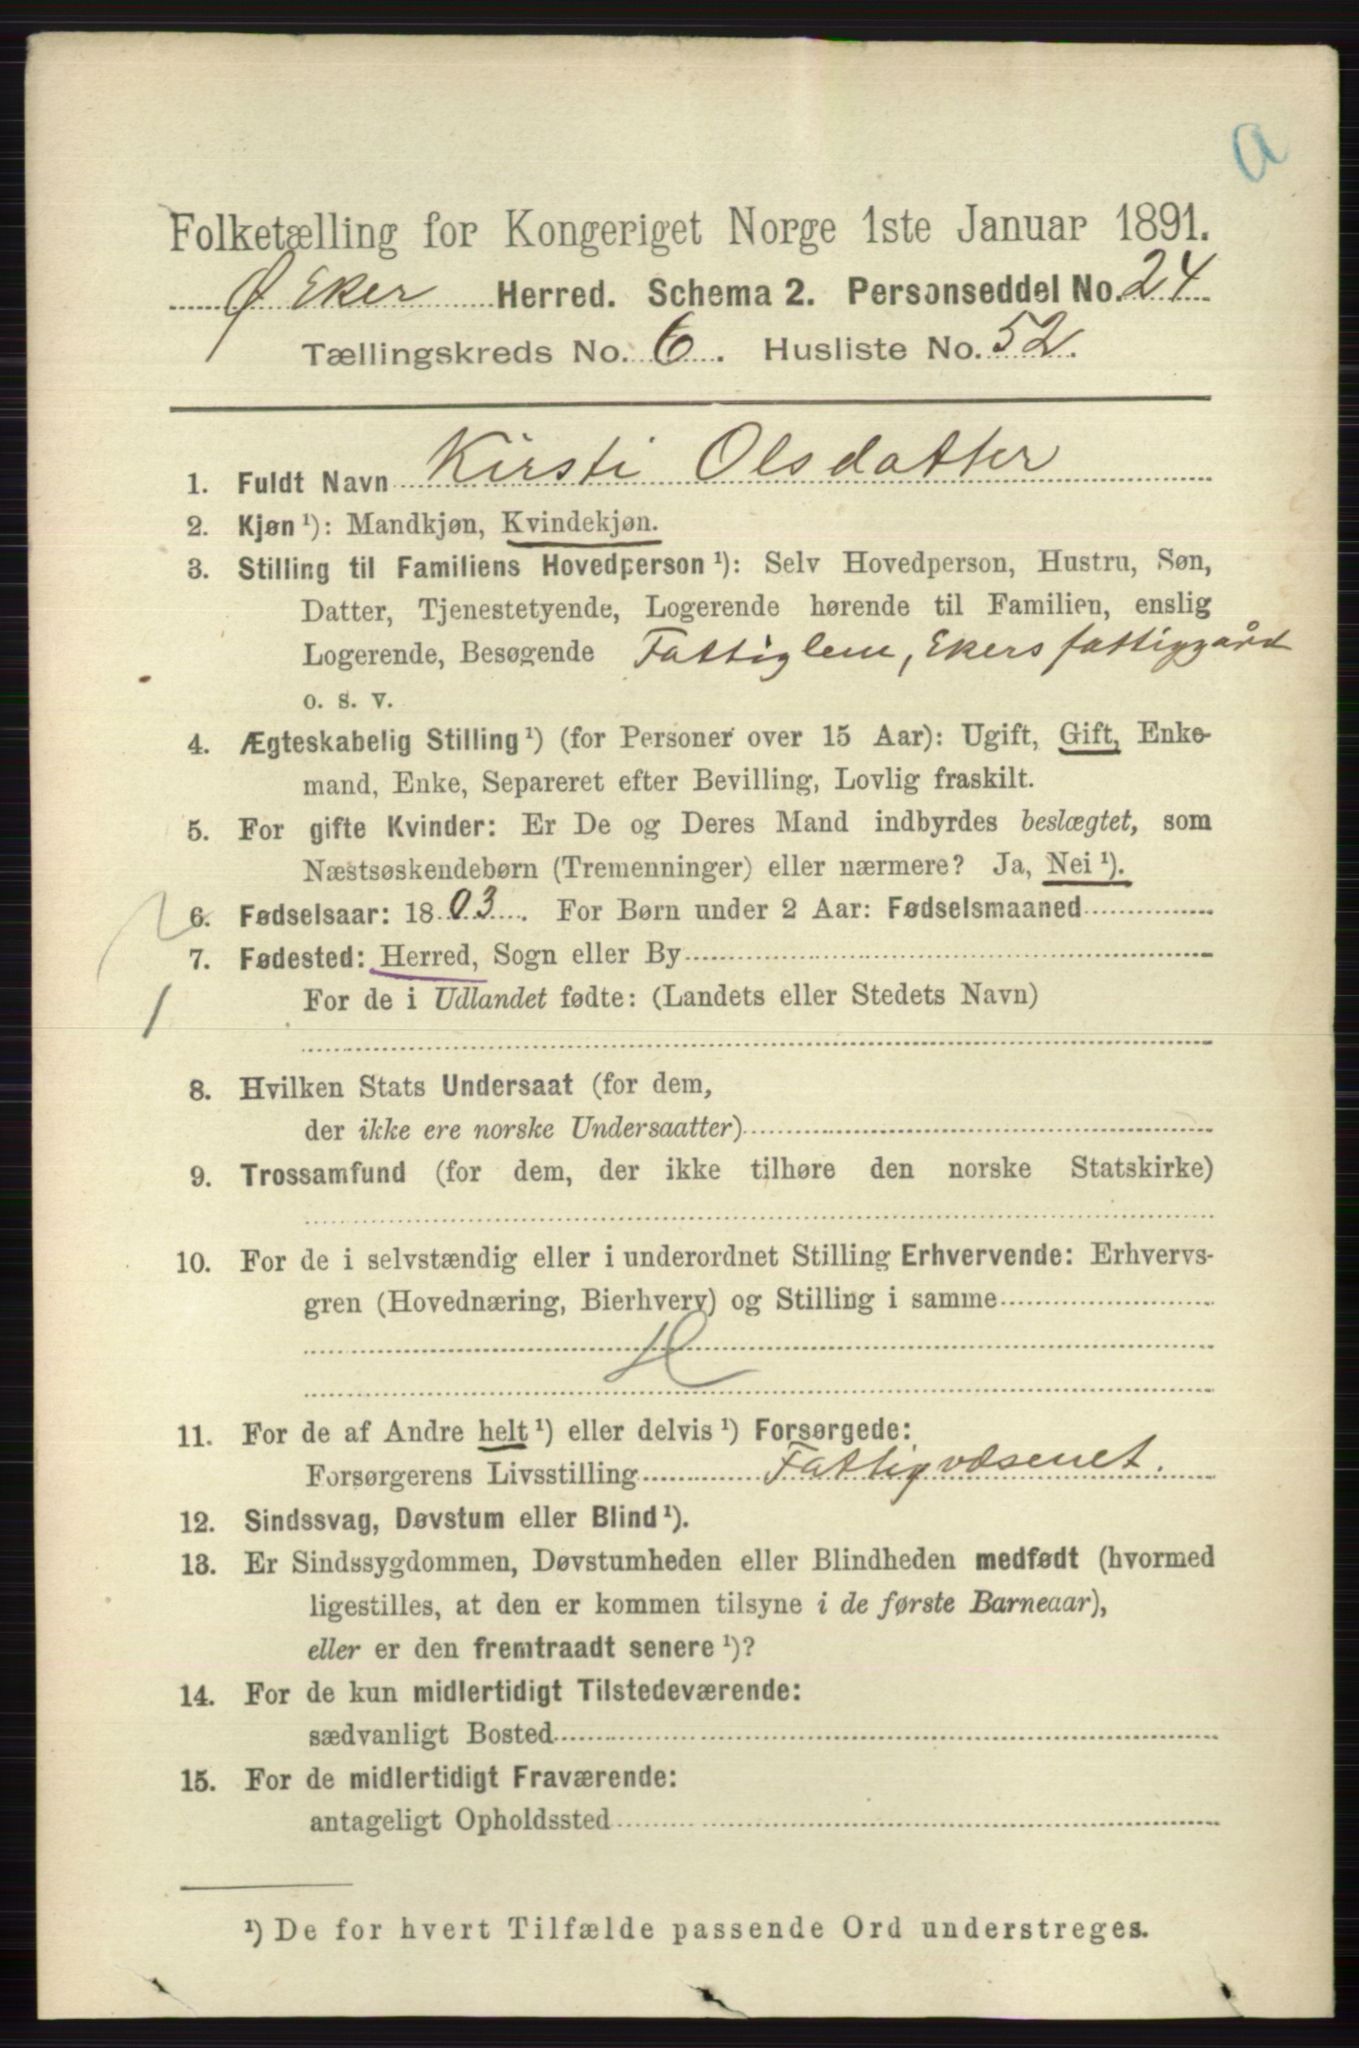 a
Folketælling for Kongeriget Norge 1ste Januar 1891.
Ø Eker Herred. Schema 2. Personseddel No. 24
Tællingskreds No. 6. Husliste No. 52.
1. Fuldt Navn Kirsti Olsdatter
2. Kjøn ¹): Mandkjøn, Kvindekjøn.
3. Stilling til Familiens Hovedperson ¹): Selv Hovedperson, Hustru, Søn,
Datter, Tjenestetyende, Logerende hørende til Familien, enslig
Logerende, Besøgende Fattiglem, Ekers fattiggård
o. s. v.
4. Ægteskabelig Stilling ¹) (for Personer over 15 Aar): Ugift, Gift, Enke-
mand, Enke, Separeret efter Bevilling, Lovlig fraskilt.
5. For gifte Kvinder: Er De og Deres Mand indbyrdes beslægtet, som
Næstsøskendebørn (Tremenninger) eller nærmere? Ja, Nei ¹).
6. Fødselsaar: 1803. For Børn under 2 Aar: Fødselsmaaned
7. Fødested: Herred, Sogn eller By
For de i Udlandet fødte: (Landets eller Stedets Navn)
1
8. Hvilken Stats Undersaat (for dem,
der ikke ere norske Undersaatter)
9. Trossamfund (for dem, der ikke tilhøre den norske Statskirke)
10. For de i selvstændig eller i underordnet Stilling Erhvervende: Erhvervs-
gren (Hovednæring, Bierhverv) og Stilling i samme
11. For de af Andre helt ¹) eller delvis ¹) Forsørgede:
Forsørgerens Livsstilling Fattigvæsenet.
12. Sindssvag, Døvstum eller Blind ¹).
13. Er Sindssygdommen, Døvstumheden eller Blindheden medfødt (hvormed
ligestilles, at den er kommen tilsyne i de første Barneaar),
eller er den fremtraadt senere ¹)?
14. For de kun midlertidigt Tilstedeværende:
sædvanligt Bosted
15. For de midlertidigt Fraværende:
antageligt Opholdssted
¹) De for hvert Tilfælde passende Ord understreges.